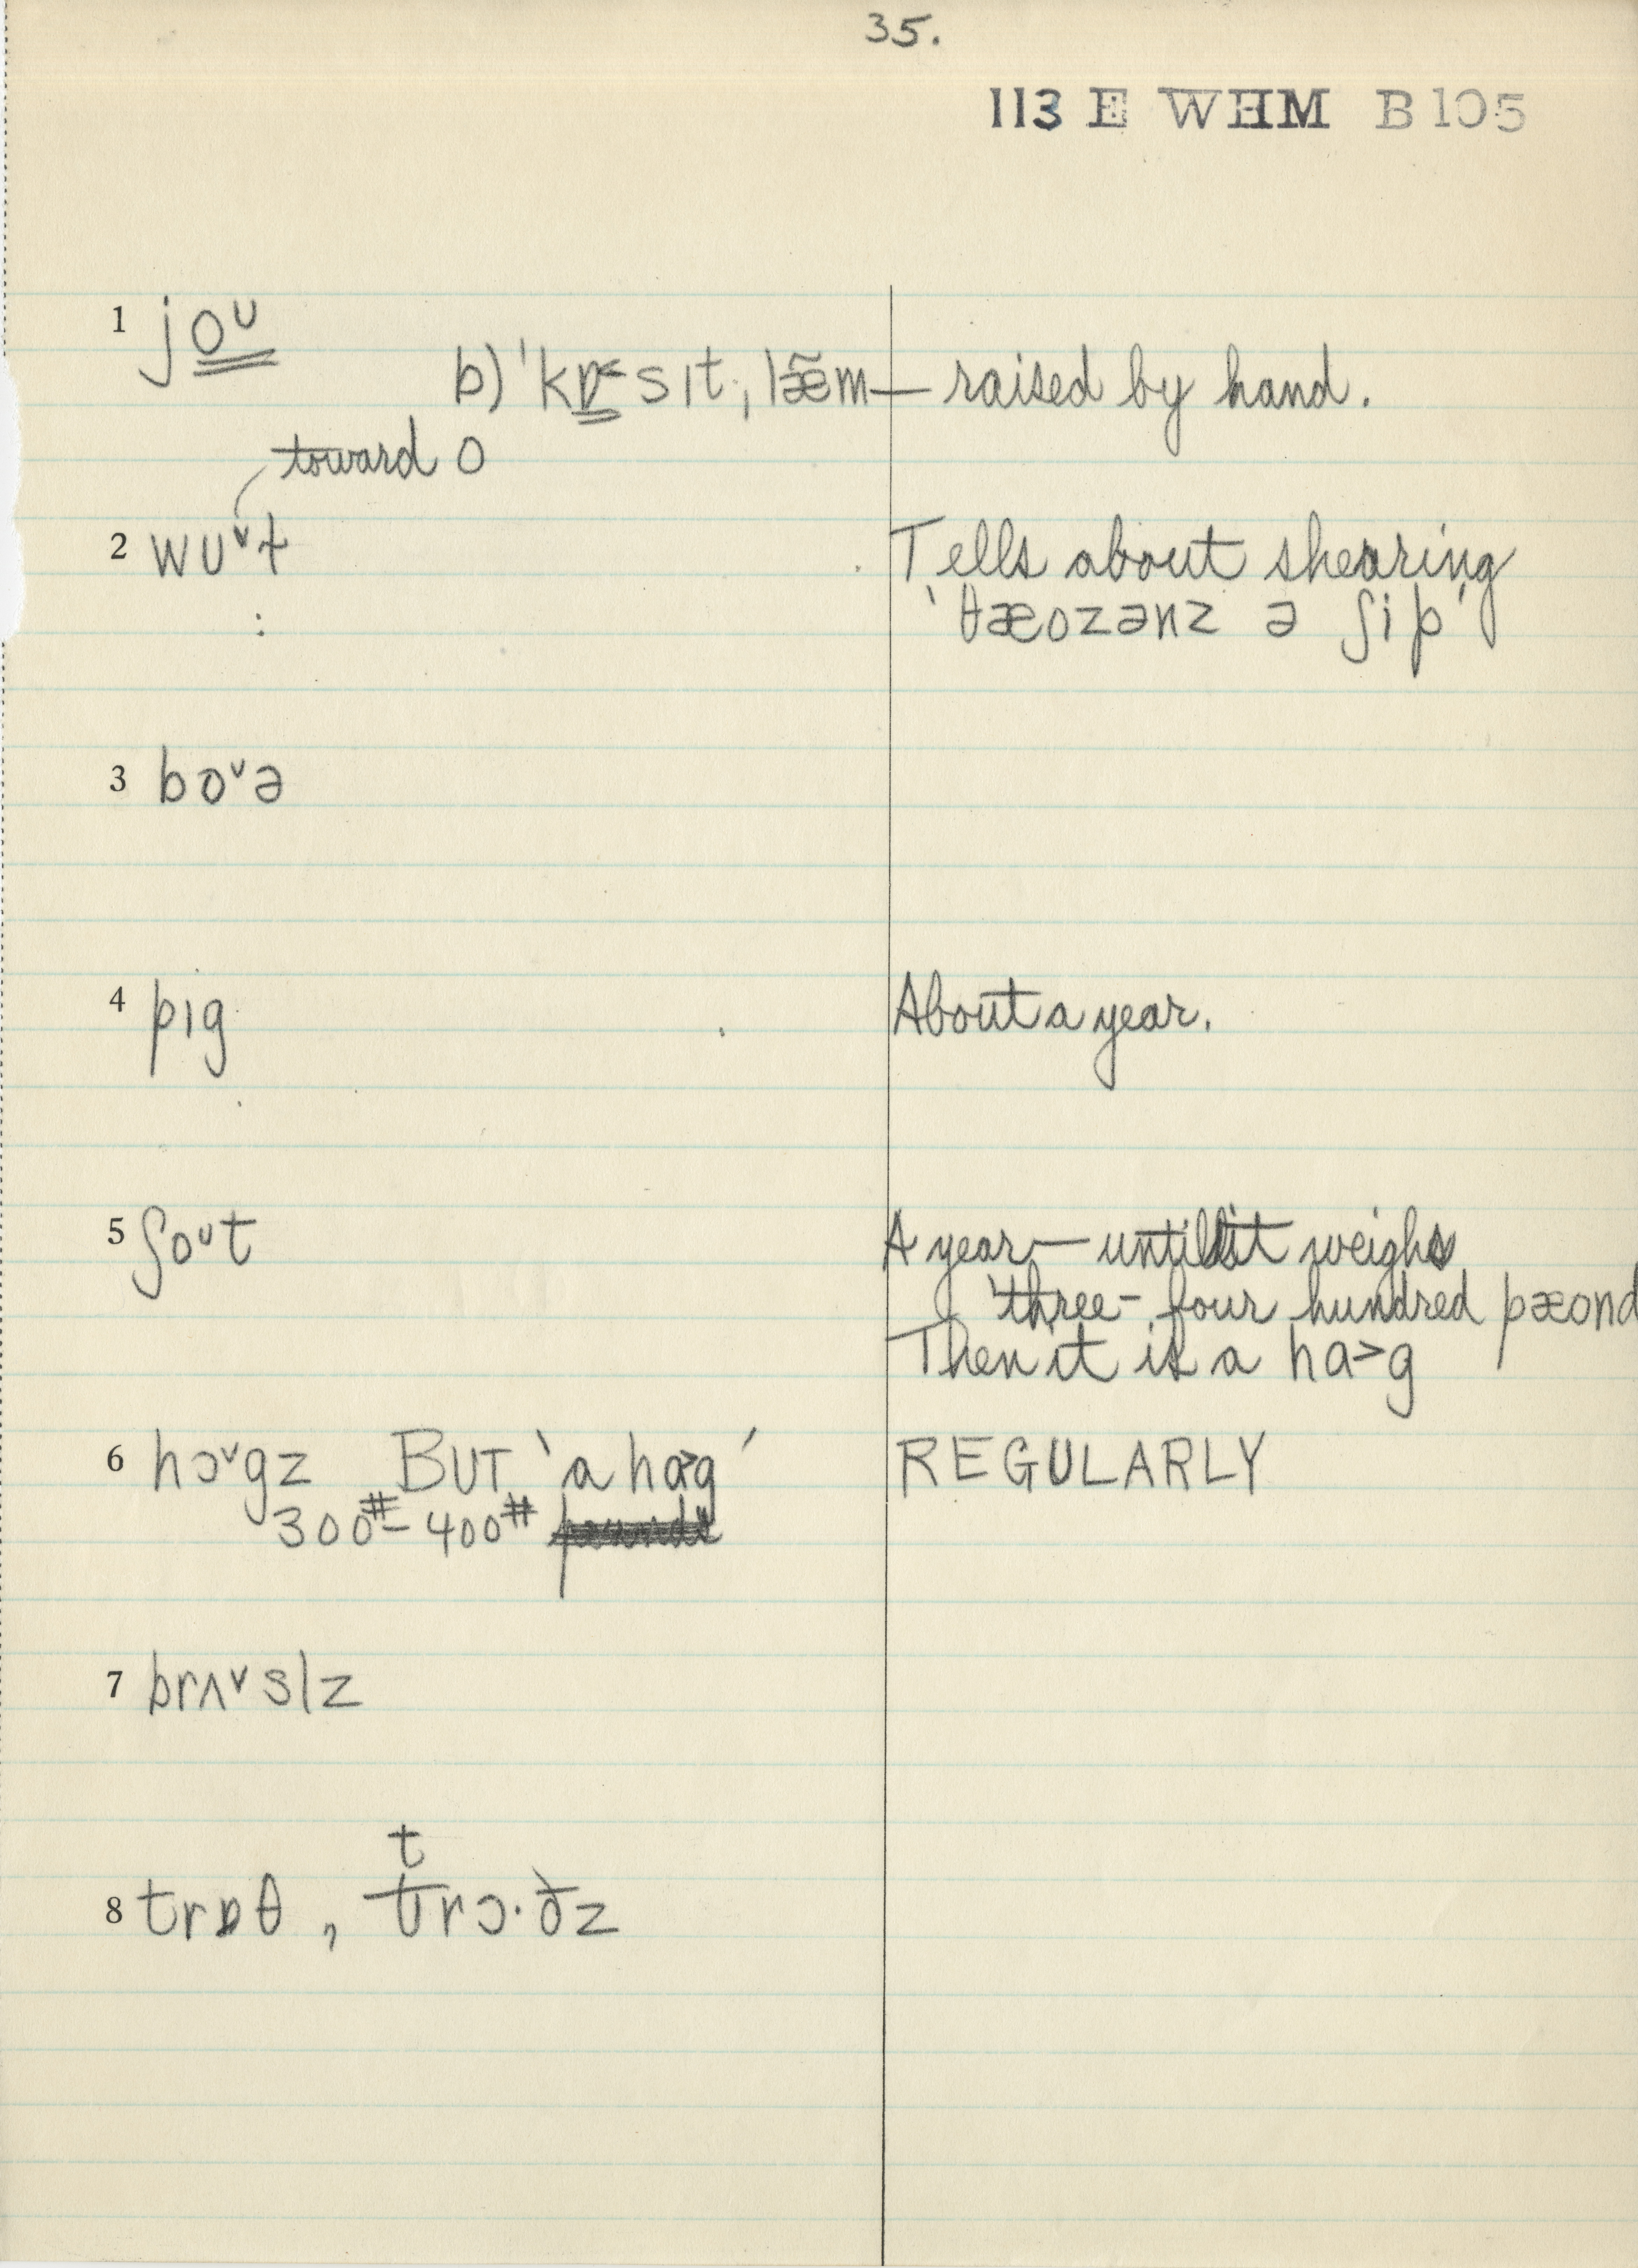 35.
113 E WHM B105
1 joᴜ
b) ˈkɒ˂sɪt ˌlæ̃m — raised by hand.
toward o
2 wᴜ˅ɫ
Tells about shearing
ˋθæozənz ə ʃipˊ
3 bo˅ə
4 pɪg
About a year.
5 ʃoᴜt
A year — until it weighs
three - four hundred pæond
Then it is a hɑ˃g
6 hɔ˅gz BUT ˋa hɑ˃gˊ
REGULARLY
300# - 400#
7 brʌ˅slz
t
8 trɒθ, trɔ·ðz